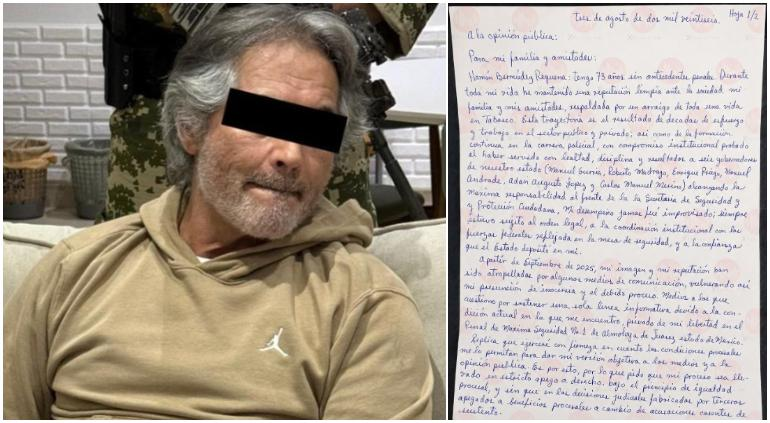 tres de agosto de dos mil veintiseis.
Hoja 1/2
A la opinión pública:
Para mi familia y amistades:
Hernán Bermúdez Requena: tengo 73 años sin antecedentes penales. Durante
toda mi vida he mantenido una reputación limpia ante la sociedad mi
familia y mis amistades, respaldada por un arraigo de toda una vida
en Tabasco. Esta trayectoria es el resultado de décadas de esfuerzo
y trabajo en el sector público y privado; así como de la formación
continua en la carrera policial, con compromiso institucional probado
al haber servido con lealtad, disciplina y resultados a seis gobernadores
de nuestro estado (Manuel Gurría, Roberto Madrazo, Enrique Priego, Manuel
Andrade, Adán Augusto López y Carlos Manuel Merino) alcanzando la
máxima responsabilidad al frente de la Secretaría de Seguridad
y Protección Ciudadana. Mi desempeño jamás fué improvisado; siempre
estuvo sujeto al orden legal, a la coordinación institucional con las
fuerzas federales reflejada en la mesa de seguridad, y a la confianza
que el Estado depositó en mí.
A partir de septiembre de 2025, mi imagen y mi reputación han
sido atropelladas por algunos medios de comunicación, vulnerando así
mi presunción de inocencia y el debido proceso. Medios a los que
cuestiono por sostener una sola línea informativa debido a la con-
dición actual en la que me encuentro, privado de mi libertad en el
Penal de Máxima Seguridad No. 1 de Almoloya de Juárez estado de México.
Réplica que ejerceré con firmeza en cuanto las condiciones procesales
me lo permitan para dar mi versión objetiva a los medios y a la
opinión pública. Es por esto, por lo que pido que mi proceso sea lle-
vado en estricto apego a derecho, bajo el principio de igualdad
procesal, y sin que en las decisiones judiciales fabricadas por terceros
apegados a beneficios procesales a cambio de acusaciones carentes de
sustento.